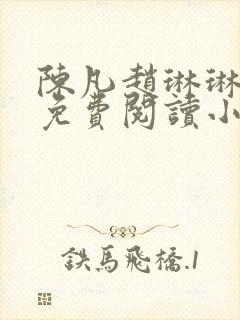 陳凡趙琳琳
免費閱讀小
鉄馬飛橋.1